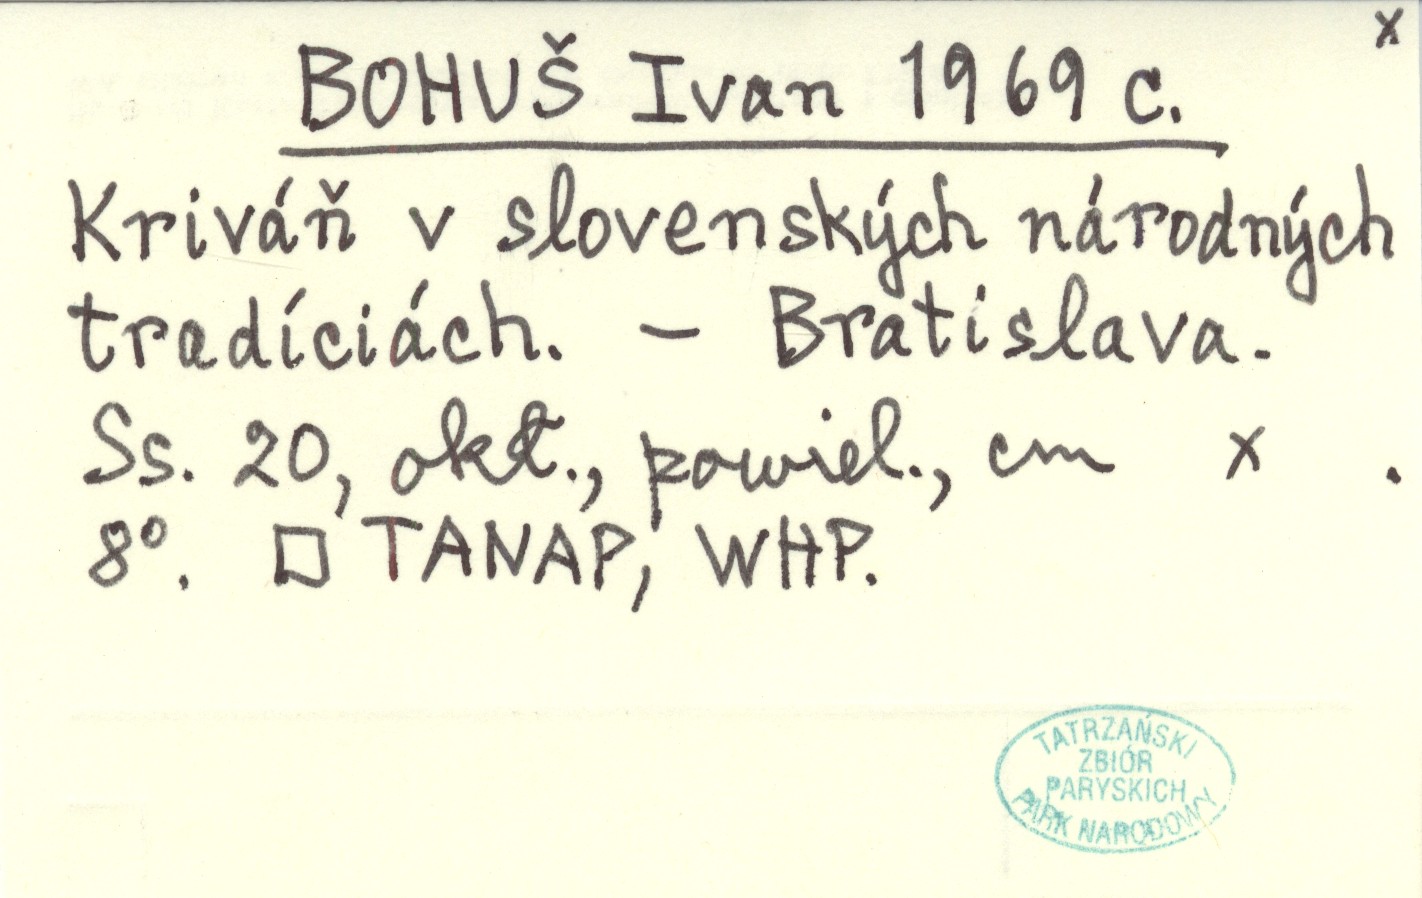 x
BOHUŠ Ivan 1969 c.
Kriváň v slovenských národných
tradíciách. – Bratislava.
Ss. 20, okł., powiel., cm x .
8°. □ TANAP, WHP.
TATRZAŃSKI
ZBIÓR
PARYSKICH
PARK NARODOWY